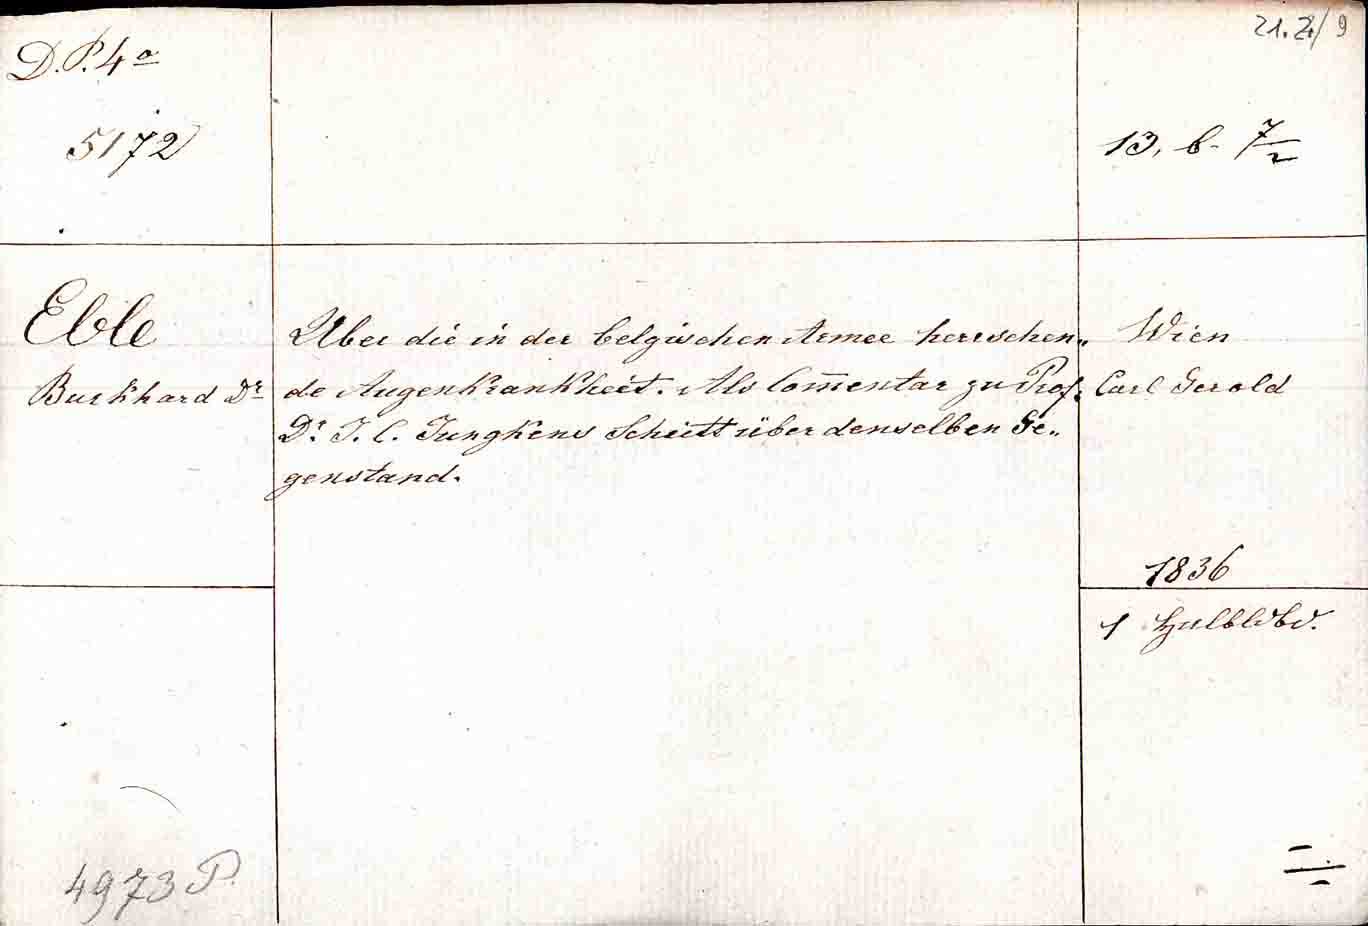 D. P. 4º
21. 2/9
5172
13. b. 7/2
Eble
Burkhard Dr
Über die in der belgischen Armee herrschen„
de Augenkrankheit. Als Com̅entar zu Prof.
Dr J. C. Jungkens Schrift über denselben Ge„
genstand.
Wien
Carl Gerold
1836
1 Halbldbd.
4973 P.